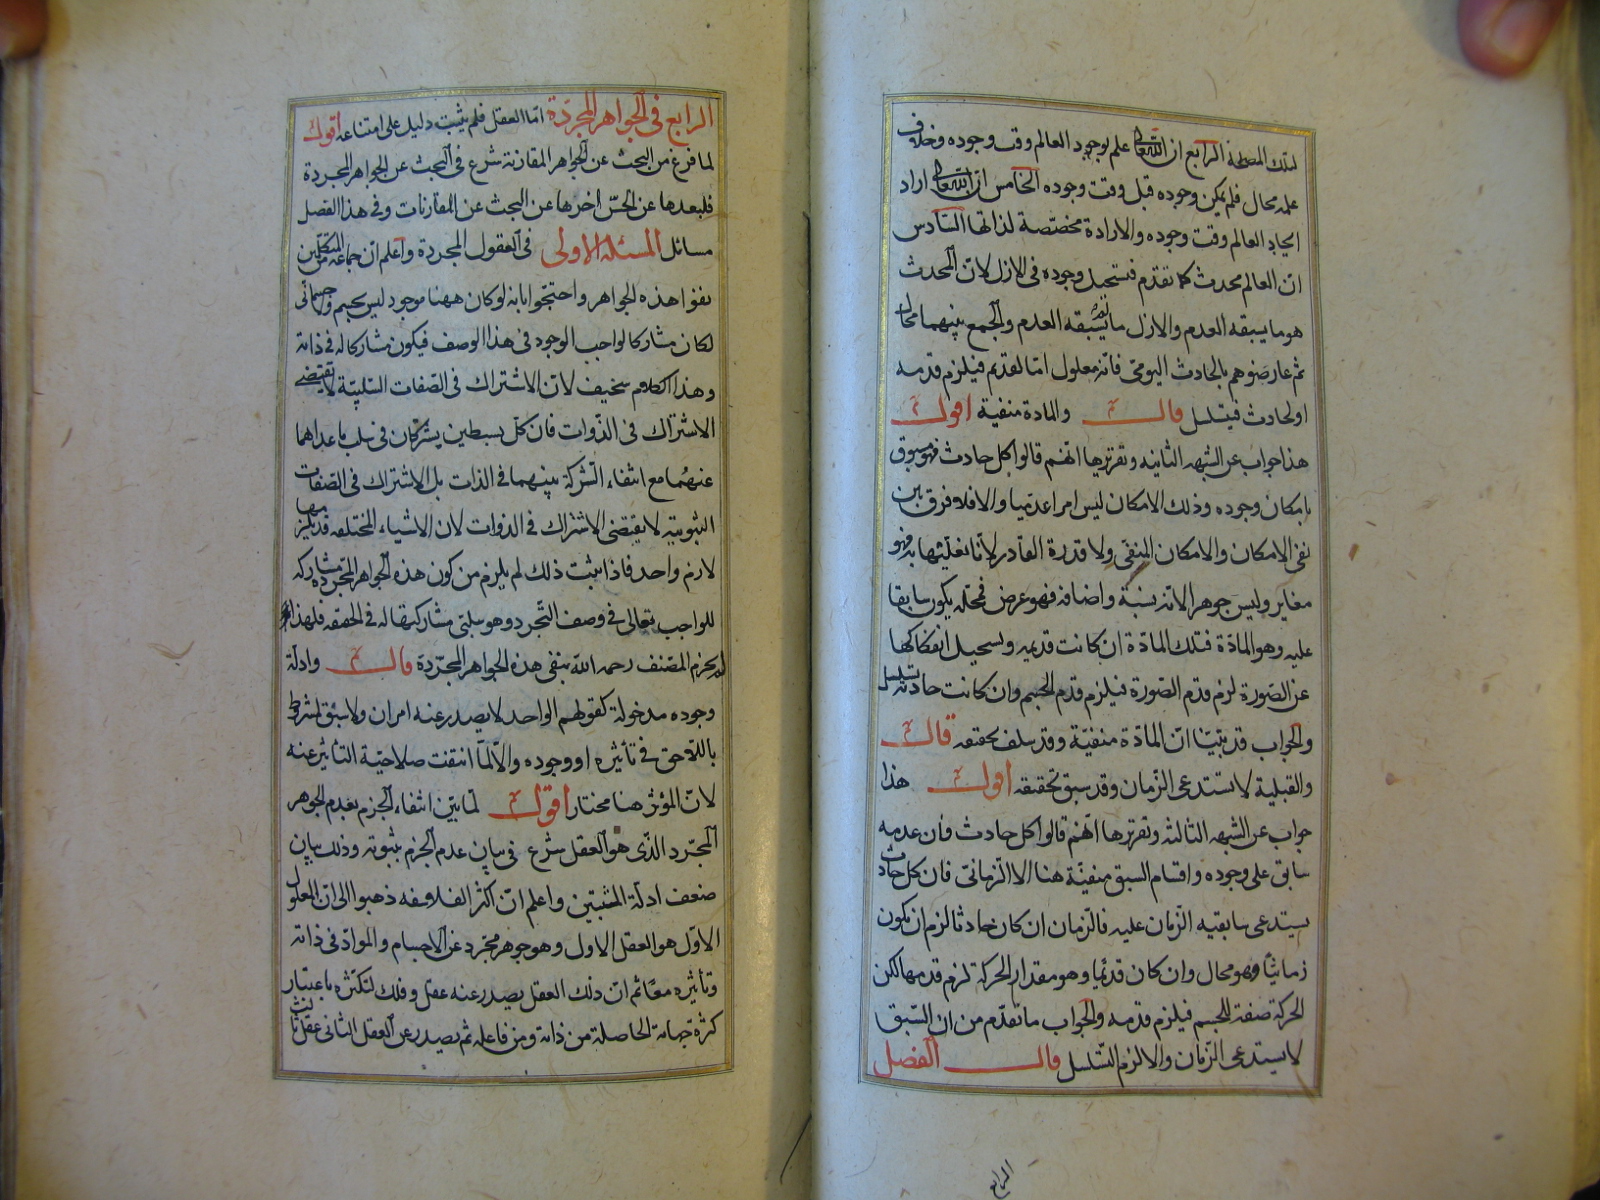 لتلك المصلحة الرابع ان الله تعالى علم بوجود العالم وقت وجوده وخلاف
علمه محال فلم يمكن وجوده قبل وقت وجوده الخامس ان الله تعالى اراد
ايجاد العالم وقت وجوده والارادة مخصصة لذاتها السادس
ان العالم محدث كما تقدم فيستحيل وجوده فى الازل لان المحدث
هو ما يسبقه العدم والازل ما لم يسبقه العدم والجمع بينهما محال
ثم عارضوهم بالحادث اليومى فانه معلول اما لقديم فيلزم قدمه
او لحادث فيتسلسل قال والمادة منفية اقول
هذا جواب عن الشبهه الثانيه وتقريرها انهم قالوا كل حادث فهو مسبوق
بامكان وجوده وذلك الامكان ليس امرا عدميا والا فلا فرق بين
نفى الامكان والامكان المنفى ولا قدرة القادر لانا نعللها به فهو
مغاير وليس جوهرا لانه نسبة واضافه فهو عرض فمحله يكون سابقا
عليه وهو المادة فتلك المادة ان كانت قديمه ويستحيل انفكاكها
عن الصورة لزم قدم الصورة فيلزم قدم الجسم وان كانت حادثه تسلسل
والجواب قد بينا ان المادة منفية وقد سلف تحقيقه قال
والقبلية لا تستدعى الزمان وقد سبق تحقيقه اقول هذا
جواب عن الشبهه الثالثه وتقريرها انهم قالوا كل حادث فان عدمه
سابق على وجوده واقسام السبق منفية هنا الا الزمانى فان كل حادث
يستدعى سابقيه الزمان عليه فالزمان ان كان حادثا لزم ان يكون
زمانيا وهو محال وان كان قديما وهو مقدار الحركة لزم قدمها لكن
الحركة صفة للجسم فيلزم قدمه والجواب ما تقدم من ان السبق
لا يستدعى الزمان والا لزم التسلسل قال الفصل
الرابع
الرابع فى الجواهر المجردة اما العقل فلم يثبت دليل على امتناعه اقول
لما فرغ من البحث عن الجواهر المقارنة شرع فى البحث عن الجواهر المجردة
فلبعدها عن الحس اخرها عن البحث عن المقارنات وفى هذا الفصل
مسائل المسئلة الاولى فى العقول المجردة واعلم ان جماعه من المتكلمين
نفوا هذه الجواهر واحتجوا بانه لو كان ههنا موجود ليس بجسم ولا جسمانى
لكان مشاركا لواجب الوجود فى هذا الوصف فيكون مشاركا له فى ذاته
وهذا الكلام سخيف لان الاشتراك فى الصفات السلبية لا يقتضى
الاشتراك فى الذوات فان كل بسيطين يشتركان فى سلب ما عداهما
عنهما مع انتفاء الشركة بينهما فى الذات بل الاشتراك فى الصفات
الثبوتية لا يقتضى الاشتراك فى الذوات لان الاشياء المختلفه قد يلزمها
لازم واحد فاذا ثبت ذلك لم يلزم من كون هذه الجواهر المجرده مشاركه
للواجب تعالى فى وصف التجرد وهو سلبى مشاركتها له فى الحقيقه فلهذا
لم يجزم المصنف رحمه الله بنفى هذه الجواهر المجردة قال وادلة
وجوده مدخولة كقولهم الواحد لا يصدر عنه امران ولا سبق لمشروط
باللاحق فى تأثيره او وجوده والا لما انتفت صلاحية التاثير عنه
لان المؤثر هنا مختار اقول لما بين انتفاء الجزم بعدم الجوهر
المجرد الذى هو العقل شرع فى بيان عدم الجزم بثبوته وذلك ببيان
ضعف ادلة المثبتين واعلم ان اكثر الفلاسفه ذهبوا الى ان المعلول
الاول هو العقل الاول وهو جوهر مجرد عن الاجسام والمواد فى ذاته
وتأثيره معا ثم ان ذلك العقل يصدر عنه عقل وفلك لتكثره باعتبار
كثرة جهاته الحاصلة من ذاته ومن فاعله ثم يصدر عن العقل الثانى عقل ثالث